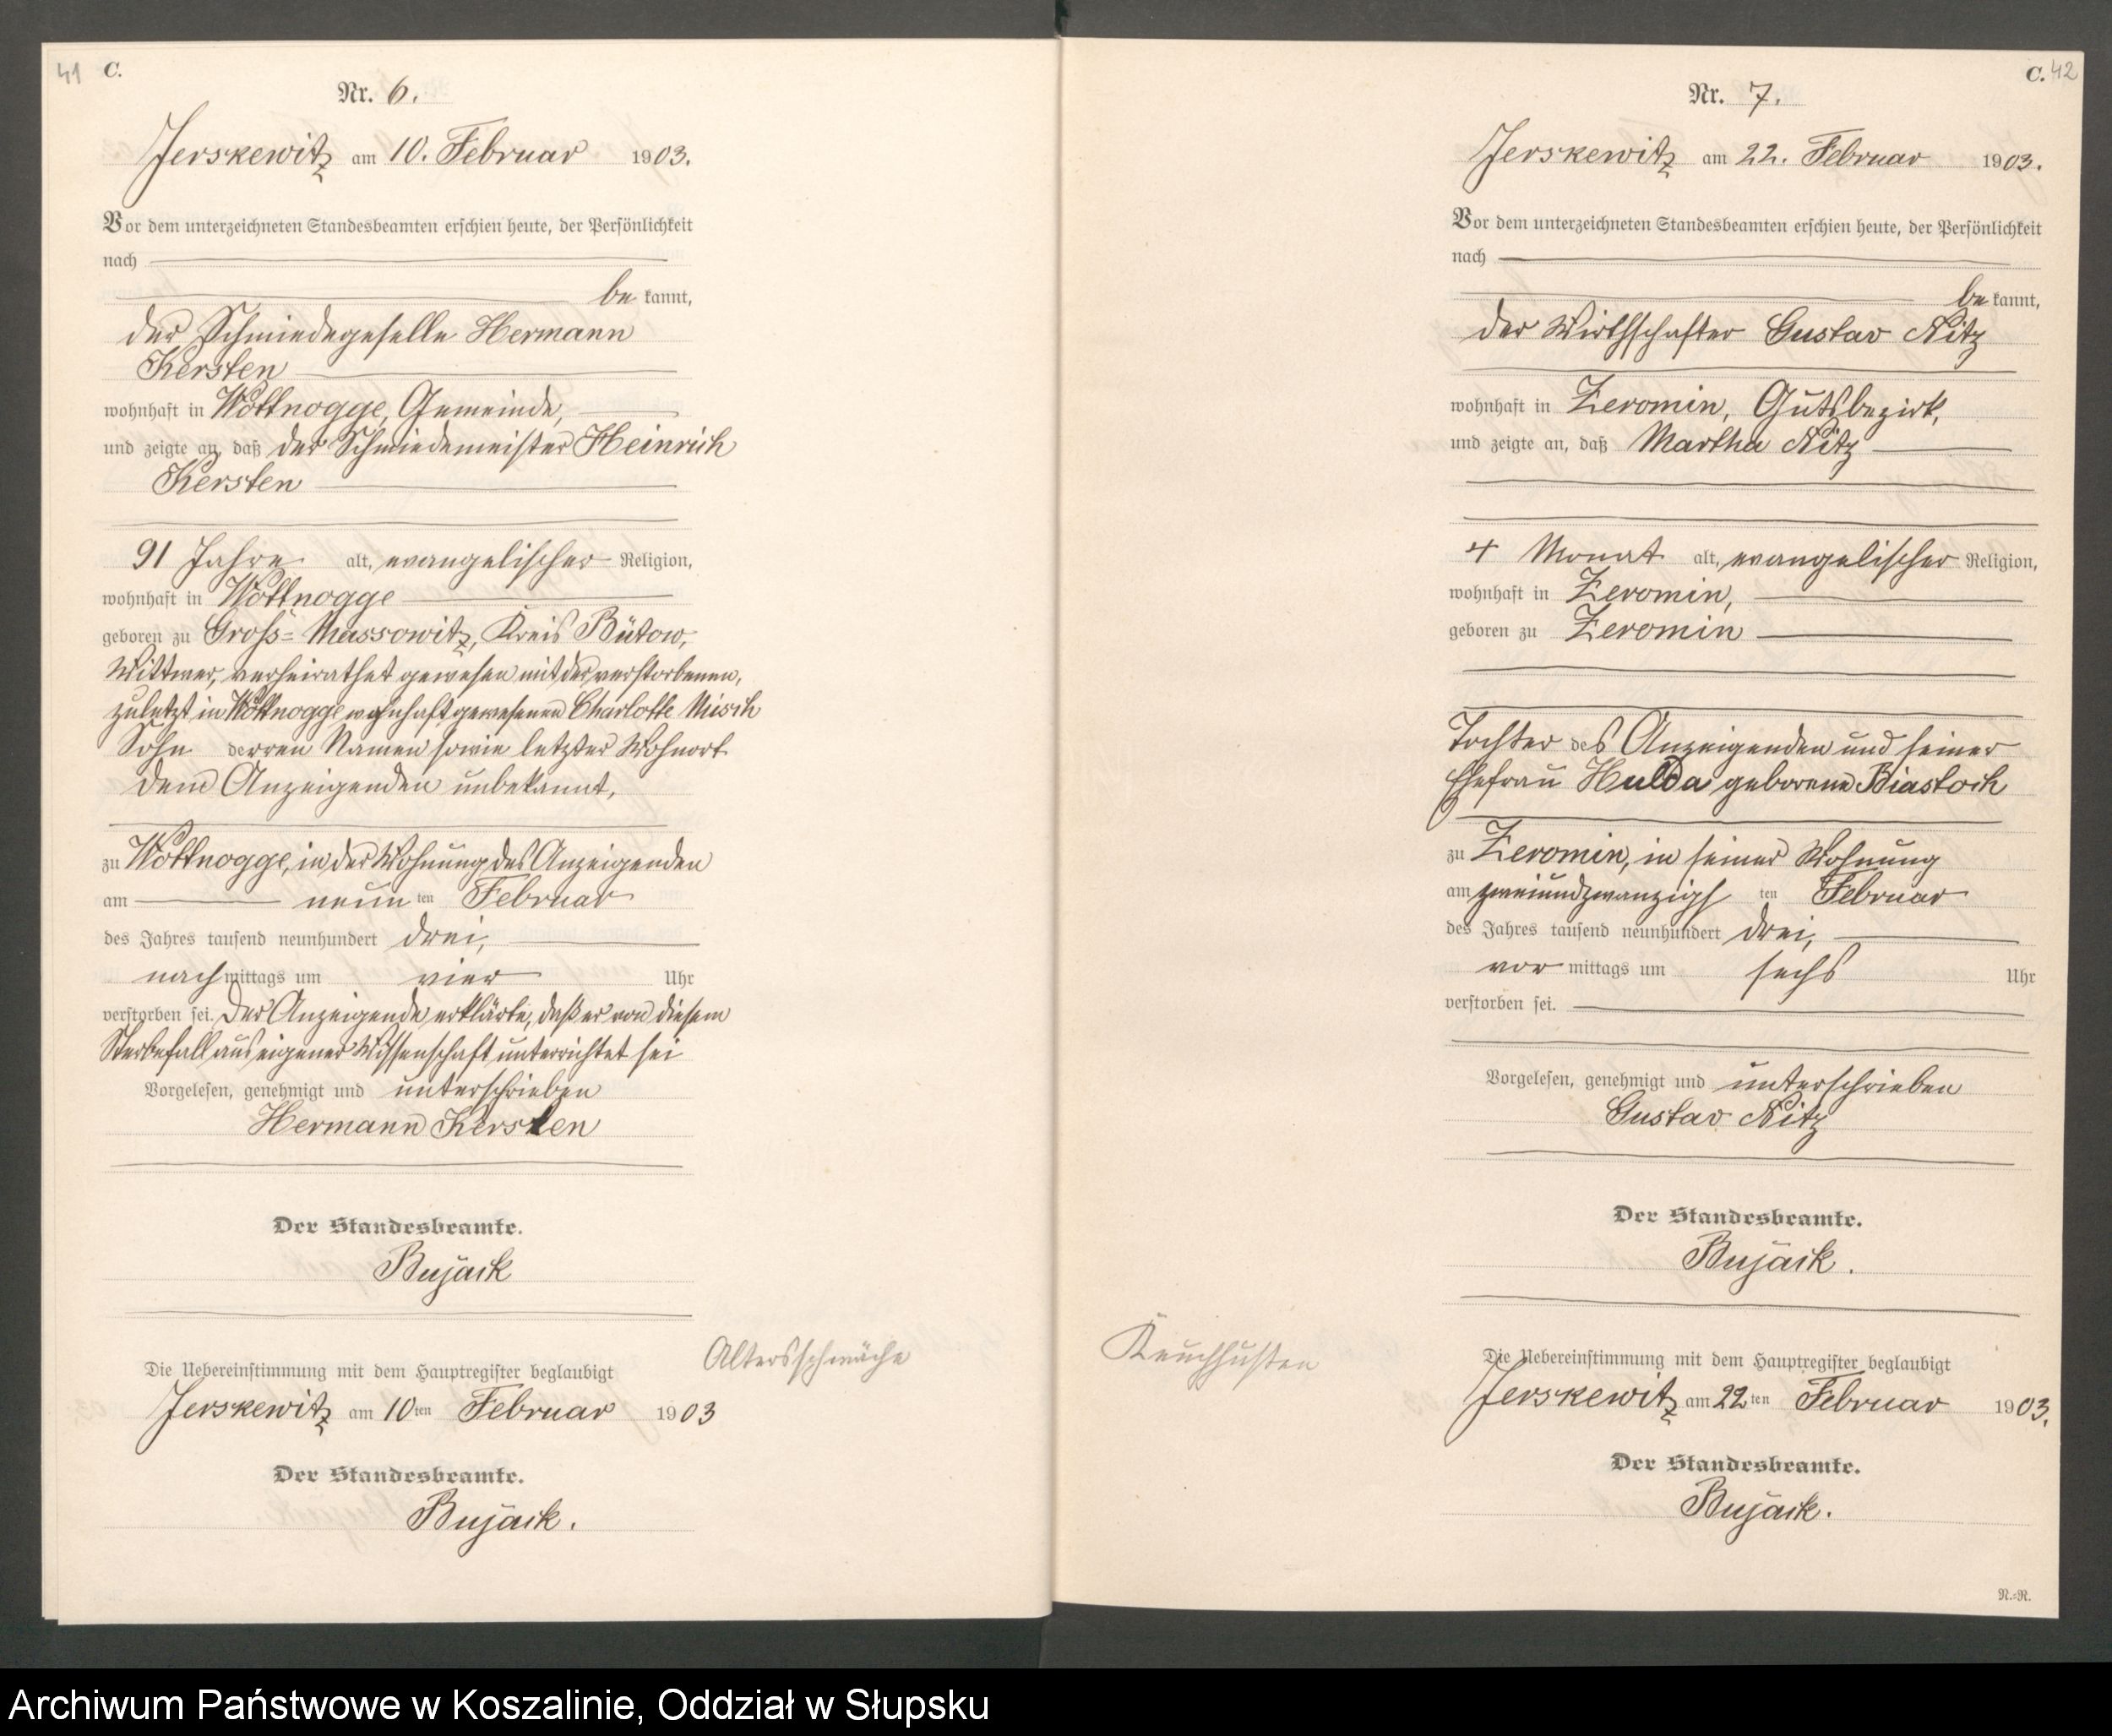 41 C.
Nr. 6.
Jerskewitz am 10. Februar 1903.
Vor dem unterzeichneten Standesbeamten erschien heute, der Persönlichkeit
nach
be kannt,
der Schmiedegeselle Hermann
Kersten
wohnhaft in Wottnogge, Gemeinde,
und zeigte an, daß der Schmiedemeister Heinrich
Kersten
91 Jahre alt, evangelischer Religion,
wohnhaft in Wottnogge
geboren zu Groß-Massowitz, Kreis Bütow,
Wittwer, verheirathet gewesen mit der verstorbenen,
zuletzt in Wottnogge wohnhaft gewesenen Charlotte Misch
Sohn derren Namen sowie letzter Wohnort
dem Anzeigenden unbekannt,
zu Wottnogge, in der Wohnung des Anzeigenden
am neun ten Februar
des Jahres tausend neunhundert drei,
nach mittags um vier Uhr
verstorben sei. Der Anzeigende erklärte, daß er von diesem
Sterbefall aus eigener Wissenschaft unterrichtet sei
Vorgelesen, genehmigt und unterschrieben
Hermann Kersten
Der Standesbeamte.
Bujack
Altersschwäche
Die Uebereinstimmung mit dem Hauptregister beglaubigt
Jerskewitz am 10ten Februar 1903
Der Standesbeamte.
Bujack.
C. 42
Nr. 7.
Jerskewitz am 22. Februar 1903.
Vor dem unterzeichneten Standesbeamten erschien heute, der Persönlichkeit
nach
be kannt,
der Wirthschafter Gustav Nitz
wohnhaft in Zeromin, Gutsbezirk,
und zeigte an, daß Martha Nitz
4 Monat alt, evangelischer Religion,
wohnhaft in Zeromin,
geboren zu Zeromin
Tochter des Anzeigenden und seiner
Ehefrau Hulda geborene Biastock
zu Zeromin, in seiner Wohnung
am zweiundzwanzigs ten Februar
des Jahres tausend neunhundert drei,
vor mittags um sechs Uhr
verstorben sei.
Vorgelesen, genehmigt und unterschrieben
Gustav Nitz
Der Standesbeamte.
Bujack.
Keuchhusten
Die Uebereinstimmung mit dem Hauptregister beglaubigt
Jerskewitz am 22ten Februar 1903.
Der Standesbeamte.
Bujack.
N.=R.
Archiwum Państwowe w Koszalinie, Oddział w Słupsku